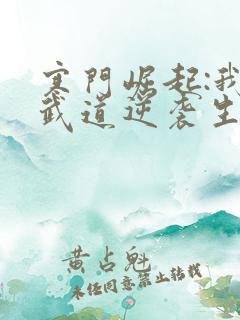 寒門崛起:我
武道逆袭生
黄占魁
未经同意禁止转载